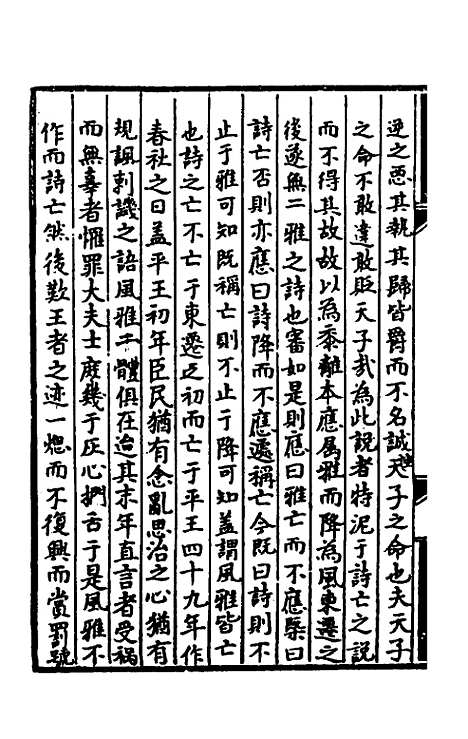 逆之惡其執其歸皆爵而不名誠以天子之命也夫天子
之命不敢違敢貶天子哉為此說者特泥于詩亡之說
而不得其故故以為黍離本應属雅而降為風東遷之
後遂無二雅之詩也審如是則應曰雅亡而不應槩曰
詩亡否則亦應曰詩降而不應遽稱亡今既曰詩則不
止于雅可知既稱亡則不止于降可知盖謂風雅皆亡
也詩之亡不亡于東遷之初而亡于平王四十九年作
春社之日盖平王初年臣民猶有念亂思治之心猶有
規諷刺譏之語風雅二體俱在迨其末年直言者受禍
而無辜者懼罪大夫士庶幾于灰心捫舌于是風雅不
作而詩亡然後歎王者之迹一熄而不復興而賞罰號